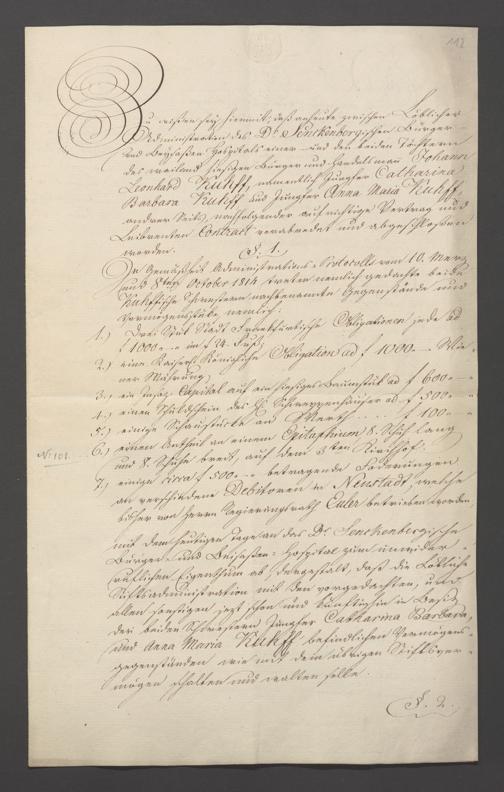 112
Zu wissen sey hiemit, daß anheute zwischen Löblicher
Administration des Dr. Senckenbergischen Bürger-
und Beysassen Hospitals einer- und den beiden Töchtern
des weiland hiesigen Bürger und Handelsmann Johann
Leonhard Kuhff, namentlich Jungfer Catharina
Barbara Kuhff und Jungfer Anna Maria Kuhff,
andrer Seits, nachfolgender aufrichtige Vertrag und
Leibrenten Contract verabredet und abgeschlossen
worden.
§. 1.
In Gemäßheit Administrations-Protocolls vom 10. Merz
und 8ten October 1814 treten nemlich gedachte beide
Kuhffische Schwestern nachbenannte Gegenstände und
Vermögensstücke, nemlich:
1.) Drei Stück Stadt Frankfurtische Obligationen jede ad
f 1000.-.- in f 24. Fuß;
2.) eine Kaiserl. Königliche Obligation ad f 1000.- Wie-
ner Währung;
3.) ein Insatz-Capital auf ein hiesiges Baumstück ad f 600.-
4.) einen Schuldschein des Schweppenhäuser ad f 500.-
5.) einige Schaustücke an Werth f 100.-
6.) einen Antheil an einem Epitaphium 8. Schuh lang
und 8. Schuhe breit, auf dem Kirchhof.
No. 101.
7.) einige circa f 500.- betragende Foderungen
an verschiedene Debitoren in Neustadt, welche
bisher von Herrn Regierungsrath Euler betrieben worden,
mit dem heutigen Tage an das Dr. Senckenbergische
Bürger- und Beisassen-Hospital zum unwider-
ruflichen Eigenthum ab, dergestalt, daß die Löbliche
Stiftsadministration mit den vorgedachten, und
allen sonstigen jezt schon und künftighin in Besiz
der beiden Schwestern Jungfer Catharina Barbara,
und Anna Maria Kuhff befindlichen Vermögens-
gegenständen wie mit dem übrigen Stiftsver-
mögen schalten und walten solle.
§. 2.